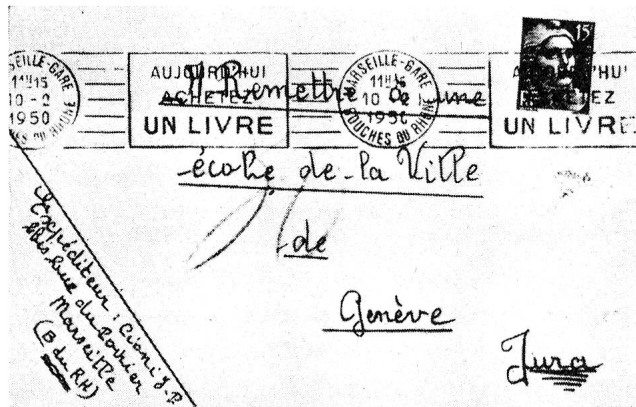 MARSEILLE-GARE
11H15
10-2
1950
BOUCHES DU RHONE
AUJOURD'HUI
ACHETEZ
UN LIVRE
MARSEILLE-GARE
11H15
10-2
1950
BOUCHES DU RHONE
AUJOURD'HUI
ACHETEZ
UN LIVRE
15F
A Remettre à une
école de la Ville
de
Genève
Jura
Expéditeur: Cioni J.P
rue du
Marseille
(B du RH)